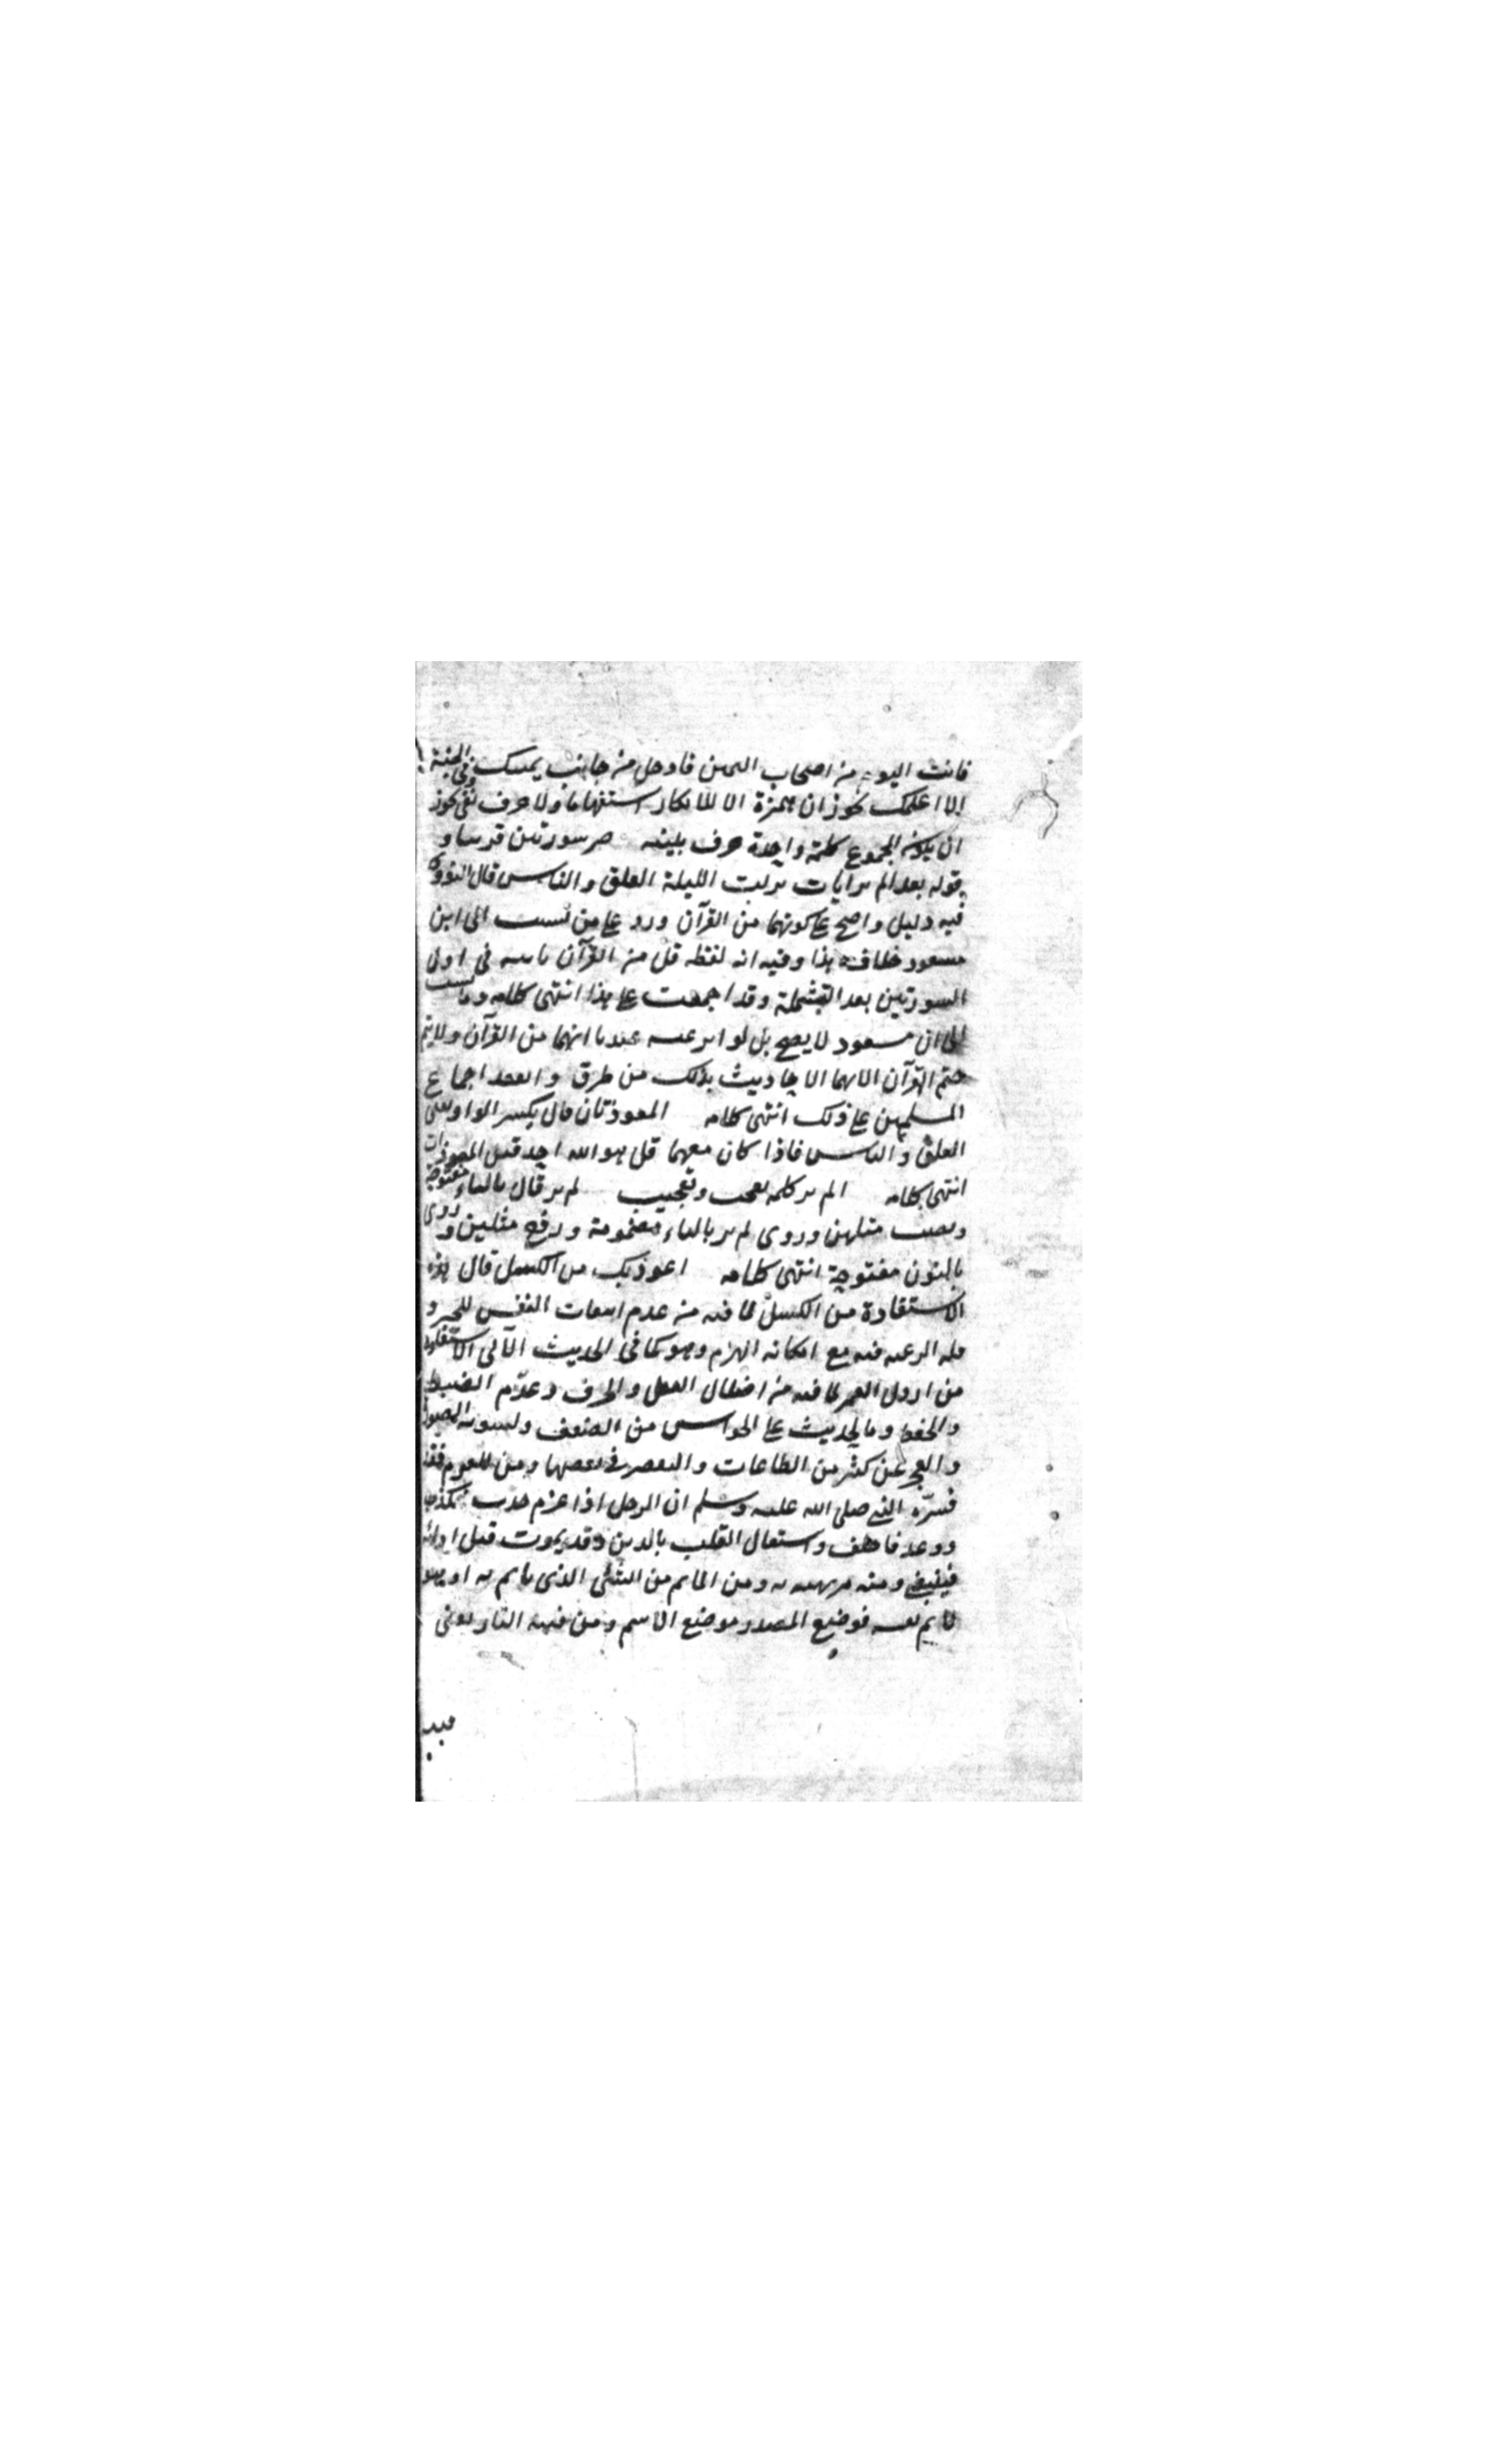 فانت اليوم من اصحاب اليمين فادخل من جانب يمينك في الجنة
الا اعلمك يجوز ان همزة الا للانكار استفهاما ولا حرف نفي يجوز
ان يكون المجموع كلمة واحدة حرف سورتين
قوله بعد الم تر ايات نزلت الليلة الفلق والناس قال النووي
فيه دليل واضح على كونهما من القرآن ورد على من نسب الى ابن
مسعود خلاف هذا وفيه ان لفظه قل من القرآن ثابته في اول
السورتين بعد البسملة وقد اجمعت على هذا انتهى كلامه وما نسب
الى ابن مسعود لا يصح بل تواتر عنه عندنا انهما من القرآن ولا يتم
ختم القرآن الا بهما الاحاديث بذلك من طرق وانعقد اجماع
المسلمين على ذلك انتهى كلامه المعوذتان قال بكسر الواو يعني
الفلق والناس فاذا كان معهما قل هو الله احد قيل المعوذات
انتهى كلامه الم تر كلمة تعجب وتعجيب لم ير قال بالياء مفتوحة
ونصب مثلهن وروى لم ير بالياء مضمومة ورفع مثلهن وروى
بالنون مفتوحة انتهى كلامه اعوذ بك من الكسل قال هذه
الاستعاذة من الكسل لما فيه من عدم انبعاث النفس للخير و
قله الرغبه فيه مع امكانه الهرم وهو كما في الحديث الآتي الاستعاذة
من ارذل العمر لما فيه من اختلال العقل والخرف وعدم الضبط
والحفظ وما يحدث على الحواس من الضعف
والعجز عن كثير من الطاعات والتقصير في بعضها ومن المغرم فقد
فسره النبي صلى الله عليه وسلم ان الرجل اذا غرم حدث فكذب
ووعد فاخلف واشتغال القلب بالدين وقد يموت قبل ادائه
فيبقى ومن الماثم من الشيء الذي ياثم به او هو
الاثم نفسه فوضع المصدر موضع الاسم ومن فتنة النار يعني